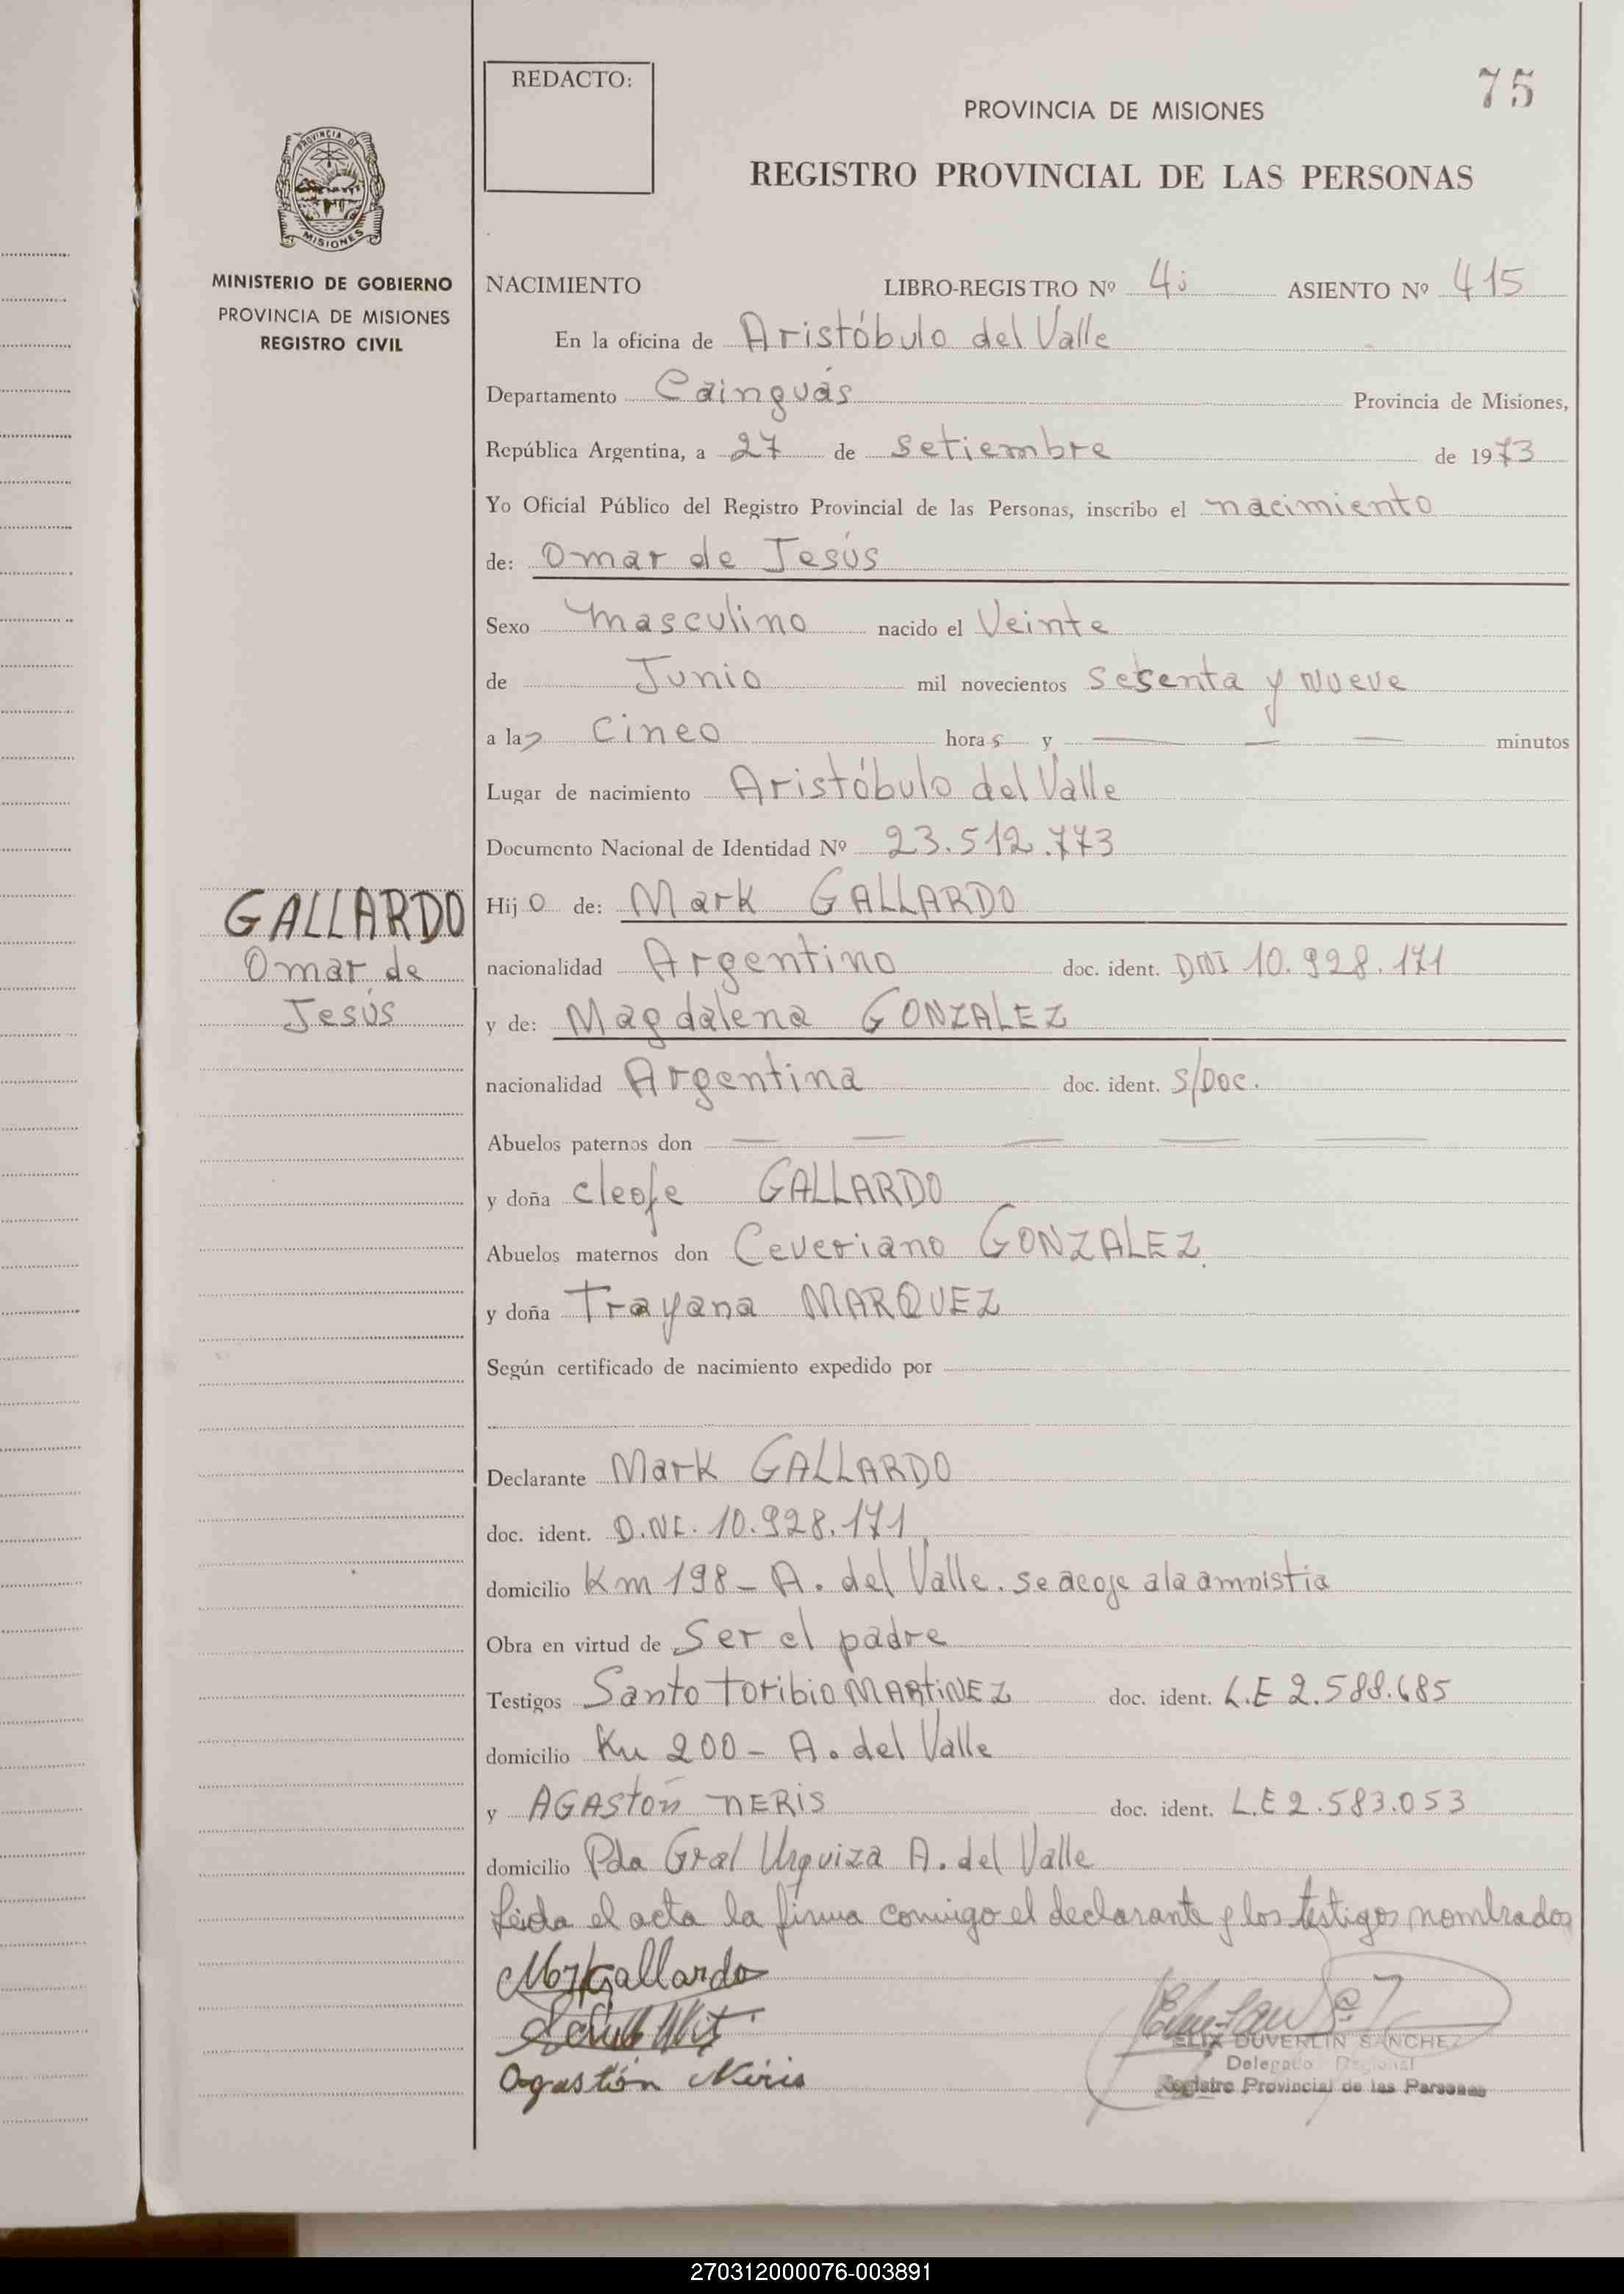 REDACTO:
75
PROVINCIA DE MISIONES
REGISTRO PROVINCIAL DE LAS PERSONAS
PROVINCIA DE
MISIONES
MINISTERIO DE GOBIERNO
PROVINCIA DE MISIONES
REGISTRO CIVIL
NACIMIENTO LIBRO-REGISTRO Nº 4i ASIENTO Nº 415
En la oficina de Aristóbulo del Valle
Departamento Cainguás Provincia de Misiones,
República Argentina, a 27 de setiembre de 1973
Yo Oficial Público del Registro Provincial de las Personas, inscribo el nacimiento
de: Omar de Jesús
Sexo masculino nacido el Veinte
de Junio mil novecientos sesenta y nueve
a las cinco horas y — — — minutos
Lugar de nacimiento Aristóbulo del Valle
Documento Nacional de Identidad Nº 23.512.773
GALLARDO
Omar de
Jesús
Hijo de: Mark GALLARDO
nacionalidad Argentino doc. ident. DNI 10.928.171
y de: Magdalena GONZALEZ
nacionalidad Argentina doc. ident. S/Doc.
Abuelos paternos don — — — — —
y doña cleofe GALLARDO
Abuelos maternos don Ceveriano GONZALEZ
y doña Trayana MARQUEZ
Según certificado de nacimiento expedido por
Declarante Mark GALLARDO
doc. ident. D.NI. 10.928.171
domicilio Km 198 - A. del Valle. se acoje a la amnistia
Obra en virtud de Ser el padre
Testigos Santo Toribio MARTINEZ doc. ident. L.E 2.588.685
domicilio Km 200 - A. del Valle
y AGASTÓN NERIS doc. ident. L.E 2.583.053
domicilio Pda Gral Urquiza A. del Valle
Leida el acta la firma conmigo el declarante y los testigos nombrados
Mark Gallardo
Agastión Niris
ELIX DUVERLIN SANCHEZ
Delegado Regional
Registro Provincial de las Personas
270312000076-003891